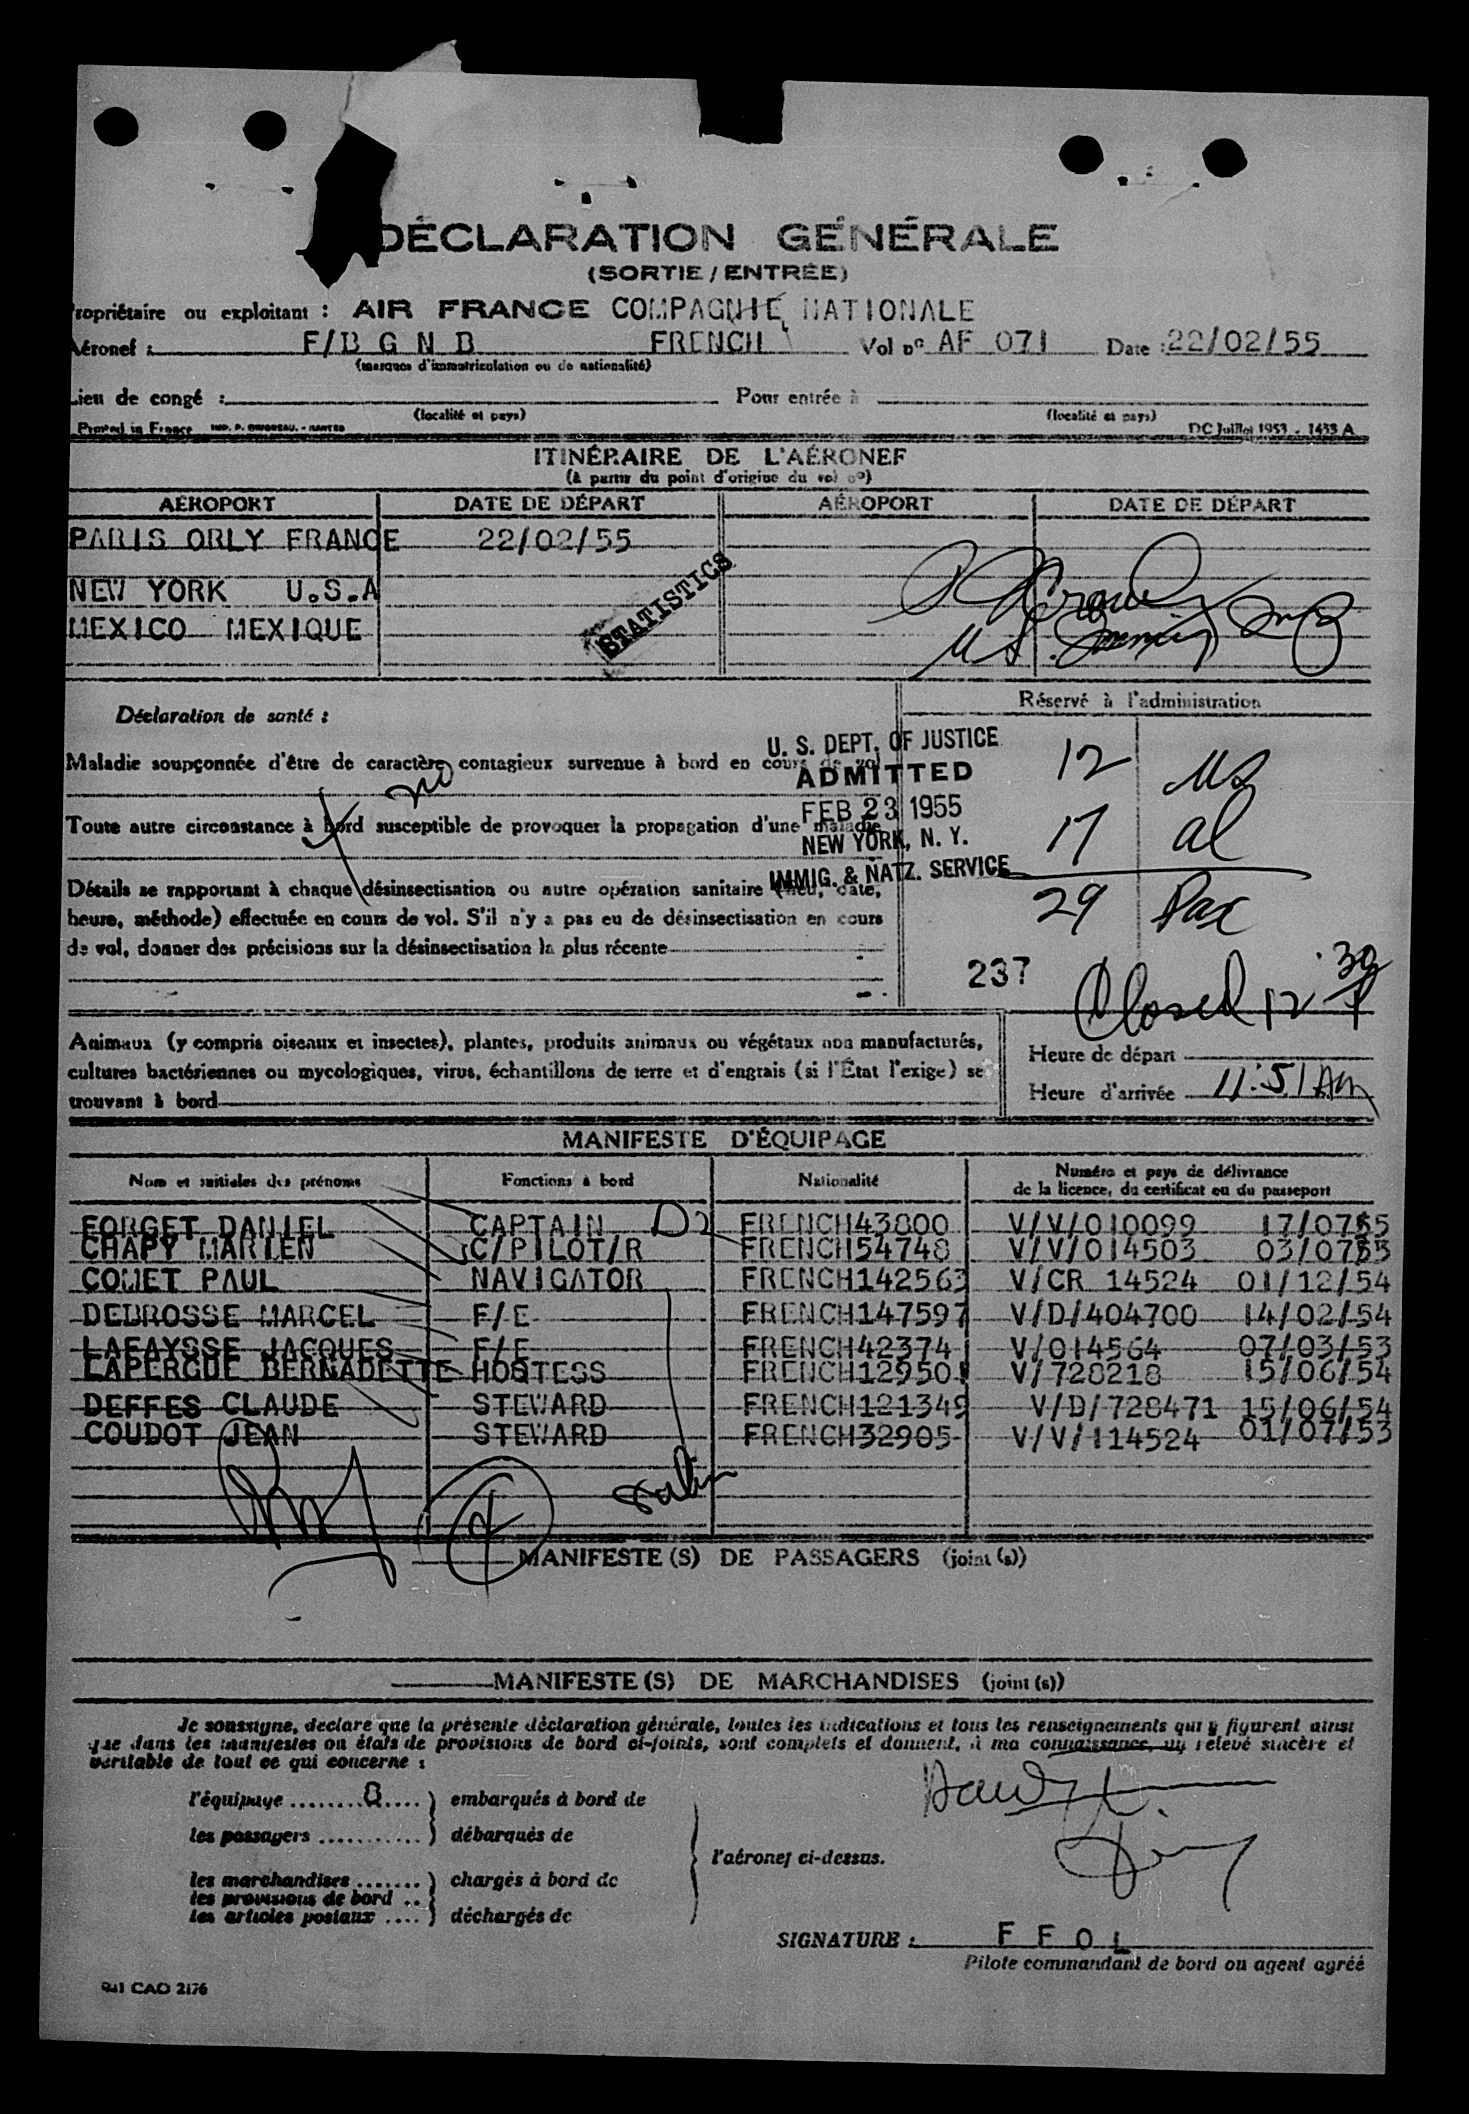 DÉCLARATION GÉNÉRALE
(SORTIE / ENTRÉE)
ropriétaire ou exploitant : AIR FRANCE COMPAGNIE NATIONALE
Aéronef : F/B G N D FRENCH Vol nº AF 071 Date : 22/02/55
(marques d'immatriculation ou de nationalité)
Lieu de congé : Pour entrée à
(localité et pays) (localité et pays)
Printed in France DC Juillet 1953 - 1433 A
ITINÉRAIRE DE L'AÉRONEF
(à partir du point d'origine du vol nº)
AÉROPORT DATE DE DÉPART AÉROPORT DATE DE DÉPART
PARIS ORLY FRANCE 22/02/55
NEW YORK U.S.A
MEXICO MEXIQUE
STATISTICS
Déclaration de santé : Réservé à l'administration
Maladie soupçonnée d'être de caractère contagieux survenue à bord en cours de vol
no
Toute autre circonstance à bord susceptible de provoquer la propagation d'une maladie
Détails se rapportant à chaque désinsectisation ou autre opération sanitaire (lieu, date,
heure, méthode) effectuée en cours de vol. S'il n'y a pas eu de désinsectisation en cours
de vol, donner des précisions sur la désinsectisation la plus récente
U. S. DEPT. OF JUSTICE
ADMITTED
FEB 23 1955
NEW YORK, N. Y.
IMMIG. & NATZ. SERVICE
12 US
17 al
29 Pax
237
Closed 12 30 P
Animaux (y compris oiseaux et insectes), plantes, produits animaux ou végétaux non manufacturés,
cultures bactériennes ou mycologiques, virus, échantillons de terre et d'engrais (si l'État l'exige) se
trouvant à bord
Heure de départ
Heure d'arrivée 11:51 AM
MANIFESTE D'ÉQUIPAGE
Nom et initiales des prénoms Fonctions à bord Nationalité Numéro et pays de délivrance
de la licence, du certificat ou du passeport
FORGET DANIEL CAPTAIN D2 FRENCH43800 V/V/010099 17/07/55
CHAPY MARIEN C/PILOT/R FRENCH54748 V/V/014503 03/07/55
COMET PAUL NAVIGATOR FRENCH142563 V/CR 14524 01/12/54
DEBROSSE MARCEL F/E FRENCH147597 V/D/404700 14/02/54
LAFAYSSE JACQUES F/E FRENCH42374 V/014564 07/03/53
LAPERGUE BERNADETTE HOSTESS FRENCH129501 V/728218 15/06/54
DEFFES CLAUDE STEWARD FRENCH121349 V/D/728471 15/06/54
COUDOT JEAN STEWARD FRENCH32905 V/V/114524 01/07/53
MANIFESTE(S) DE PASSAGERS (joint(s))
MANIFESTE(S) DE MARCHANDISES (joint(s))
Je soussigne, declare que la présente déclaration générale, toutes les indications et tous les renseignements qui y figurent ainsi
que dans les manifestes ou états de provisions de bord ci-joints, sont complets et donnent, à ma connaissance, un relevé sincère et
véritable de tout ce qui concerne :
l'équipage ........8.... ) embarqués à bord de
les passagers ........... ) débarqués de
l'aéronef ci-dessus.
les marchandises ....... ) chargés à bord de
les provisions de bord ..
les articles postaux .... ) déchargés de
SIGNATURE : F F O L
Pilote commandant de bord ou agent agréé
941 CAO 2176